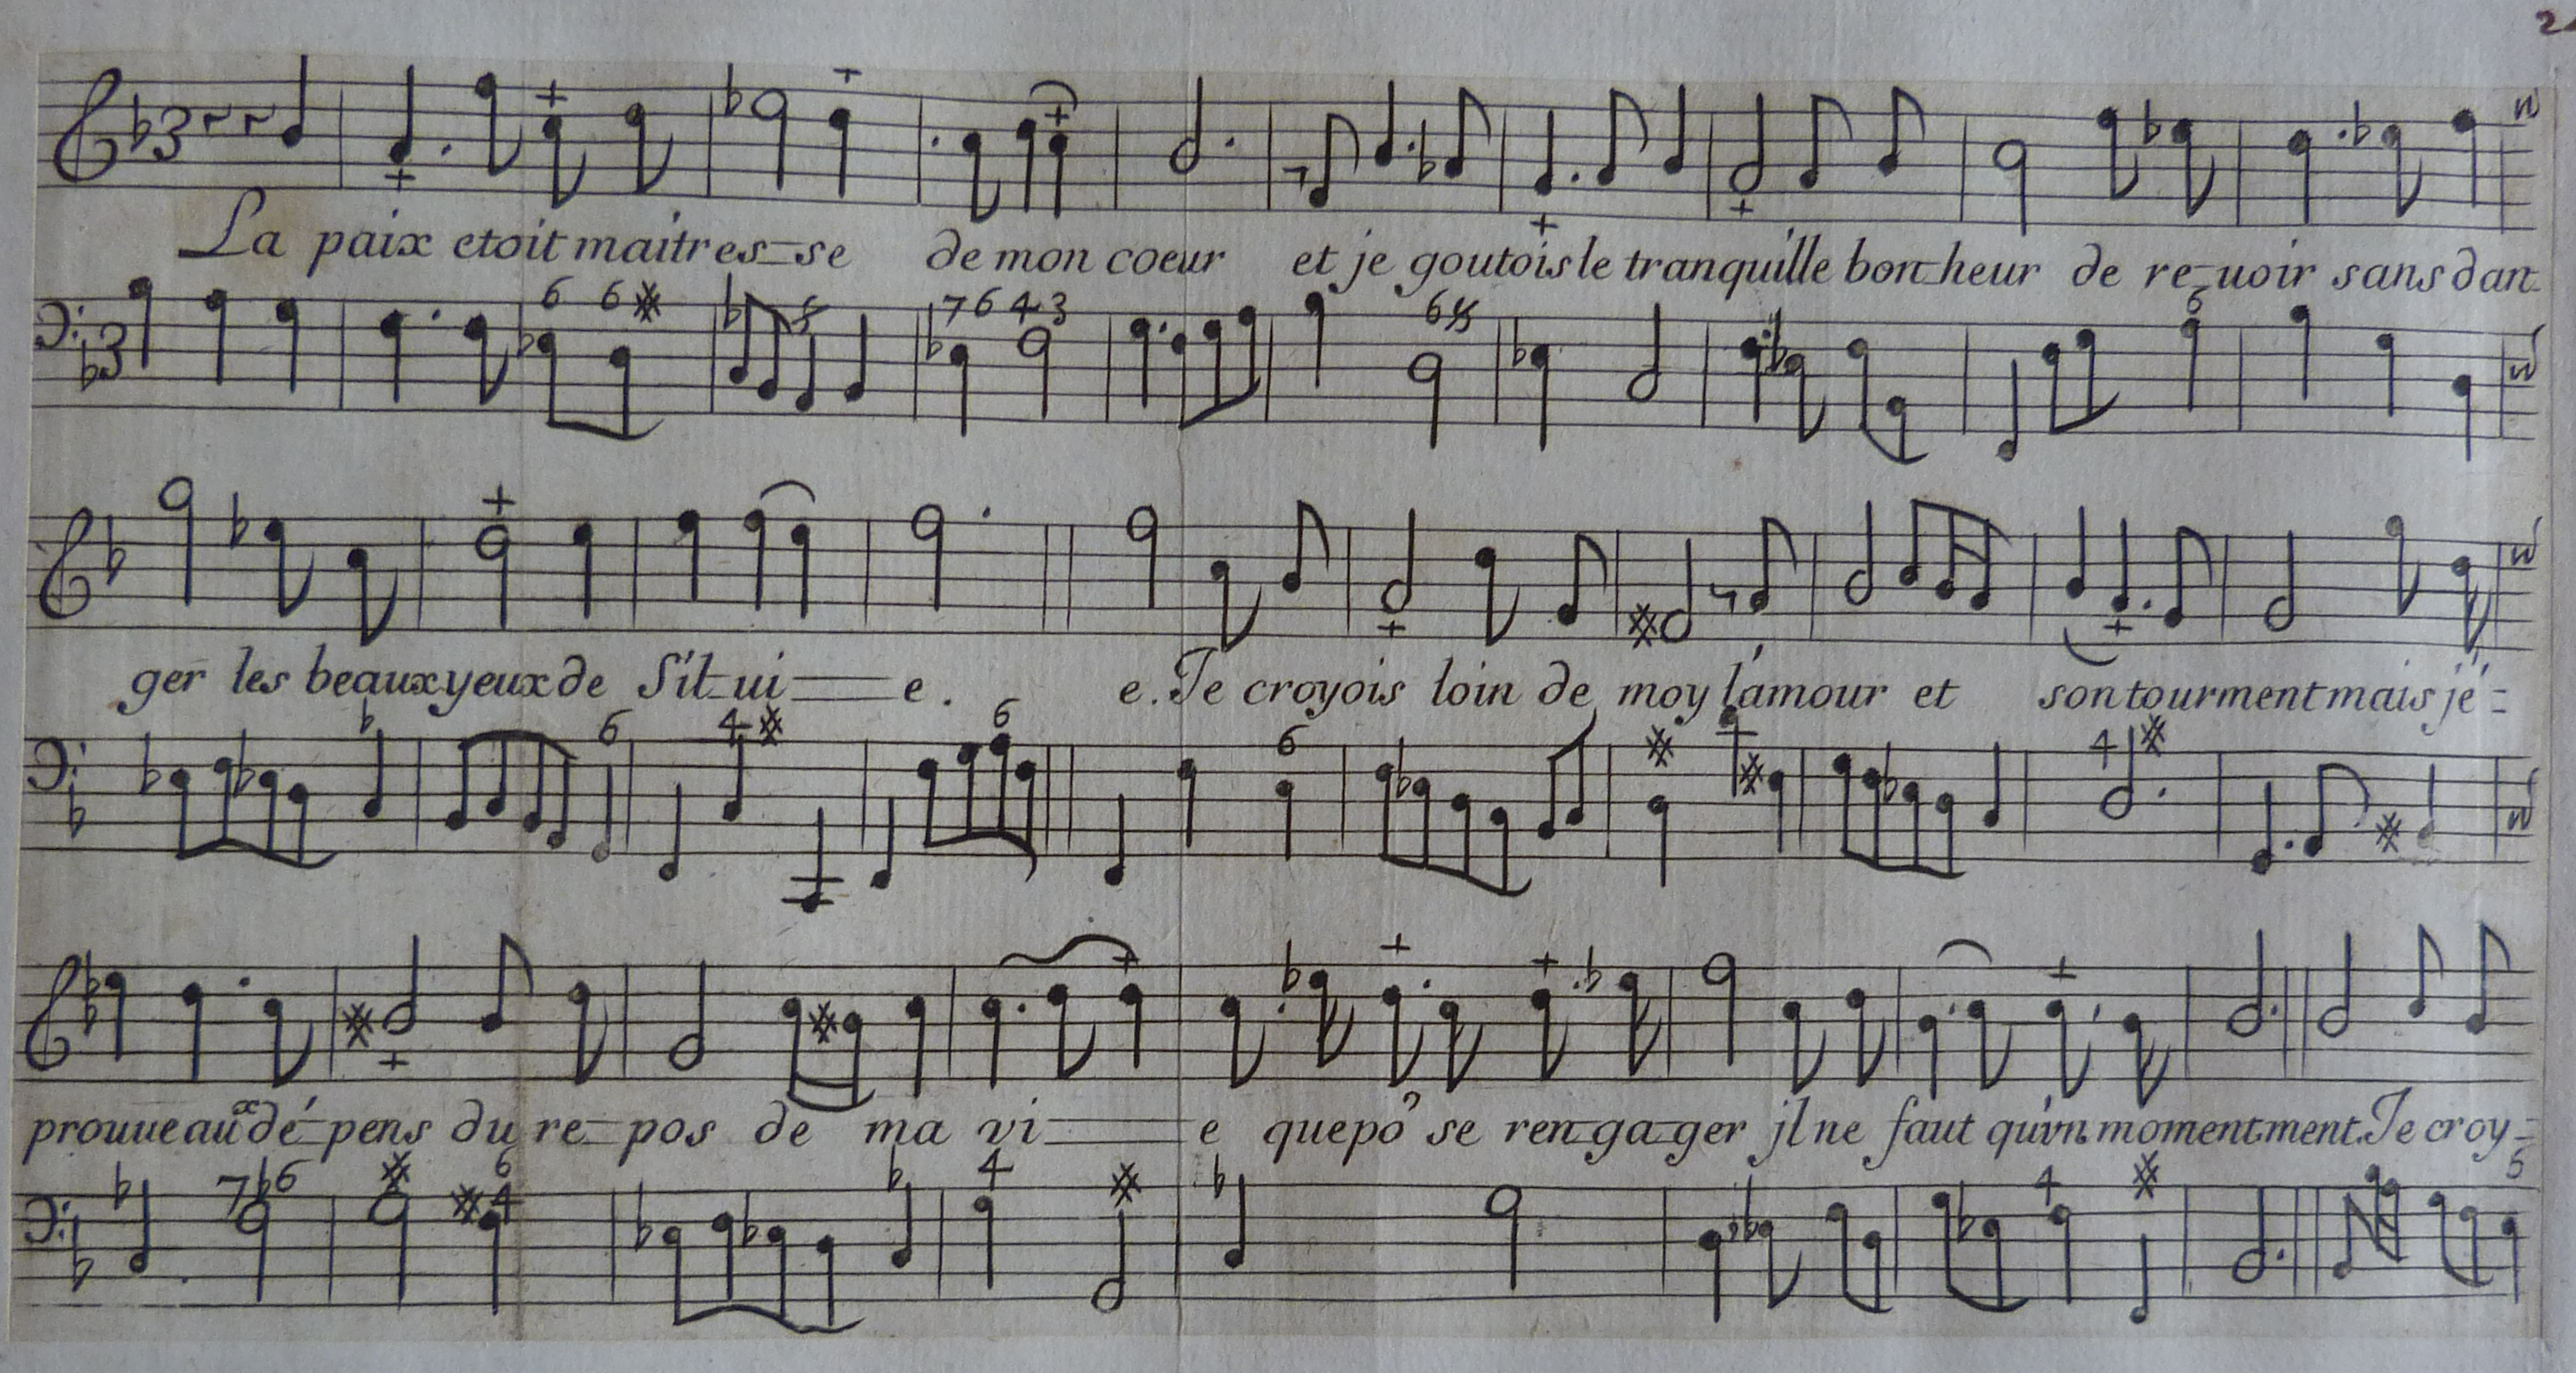 2
La paix etoit maitres-se de mon coeur et je goutois le tranquille bon-heur de re-uoir sans dan-
ger les beaux yeux de Sil-ui-e. e. Je croyois loin de moy l'amour et son tourment mais j'é-
prouue aux dé-pens du re-pos de ma vi-e que po' se ren-ga-ger jl ne faut qu'vn moment. ment. Je croy-